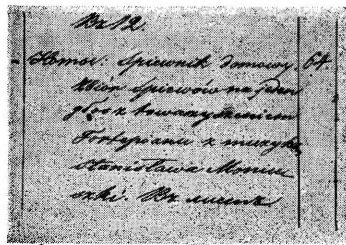 No 12.
Tenor: Śpiewnik domowy. 64.
Zbiór śpiewów na jeden
głos z towarzyszeniem
Fortepianu z muzyką
Stanisława Moniu
szki.